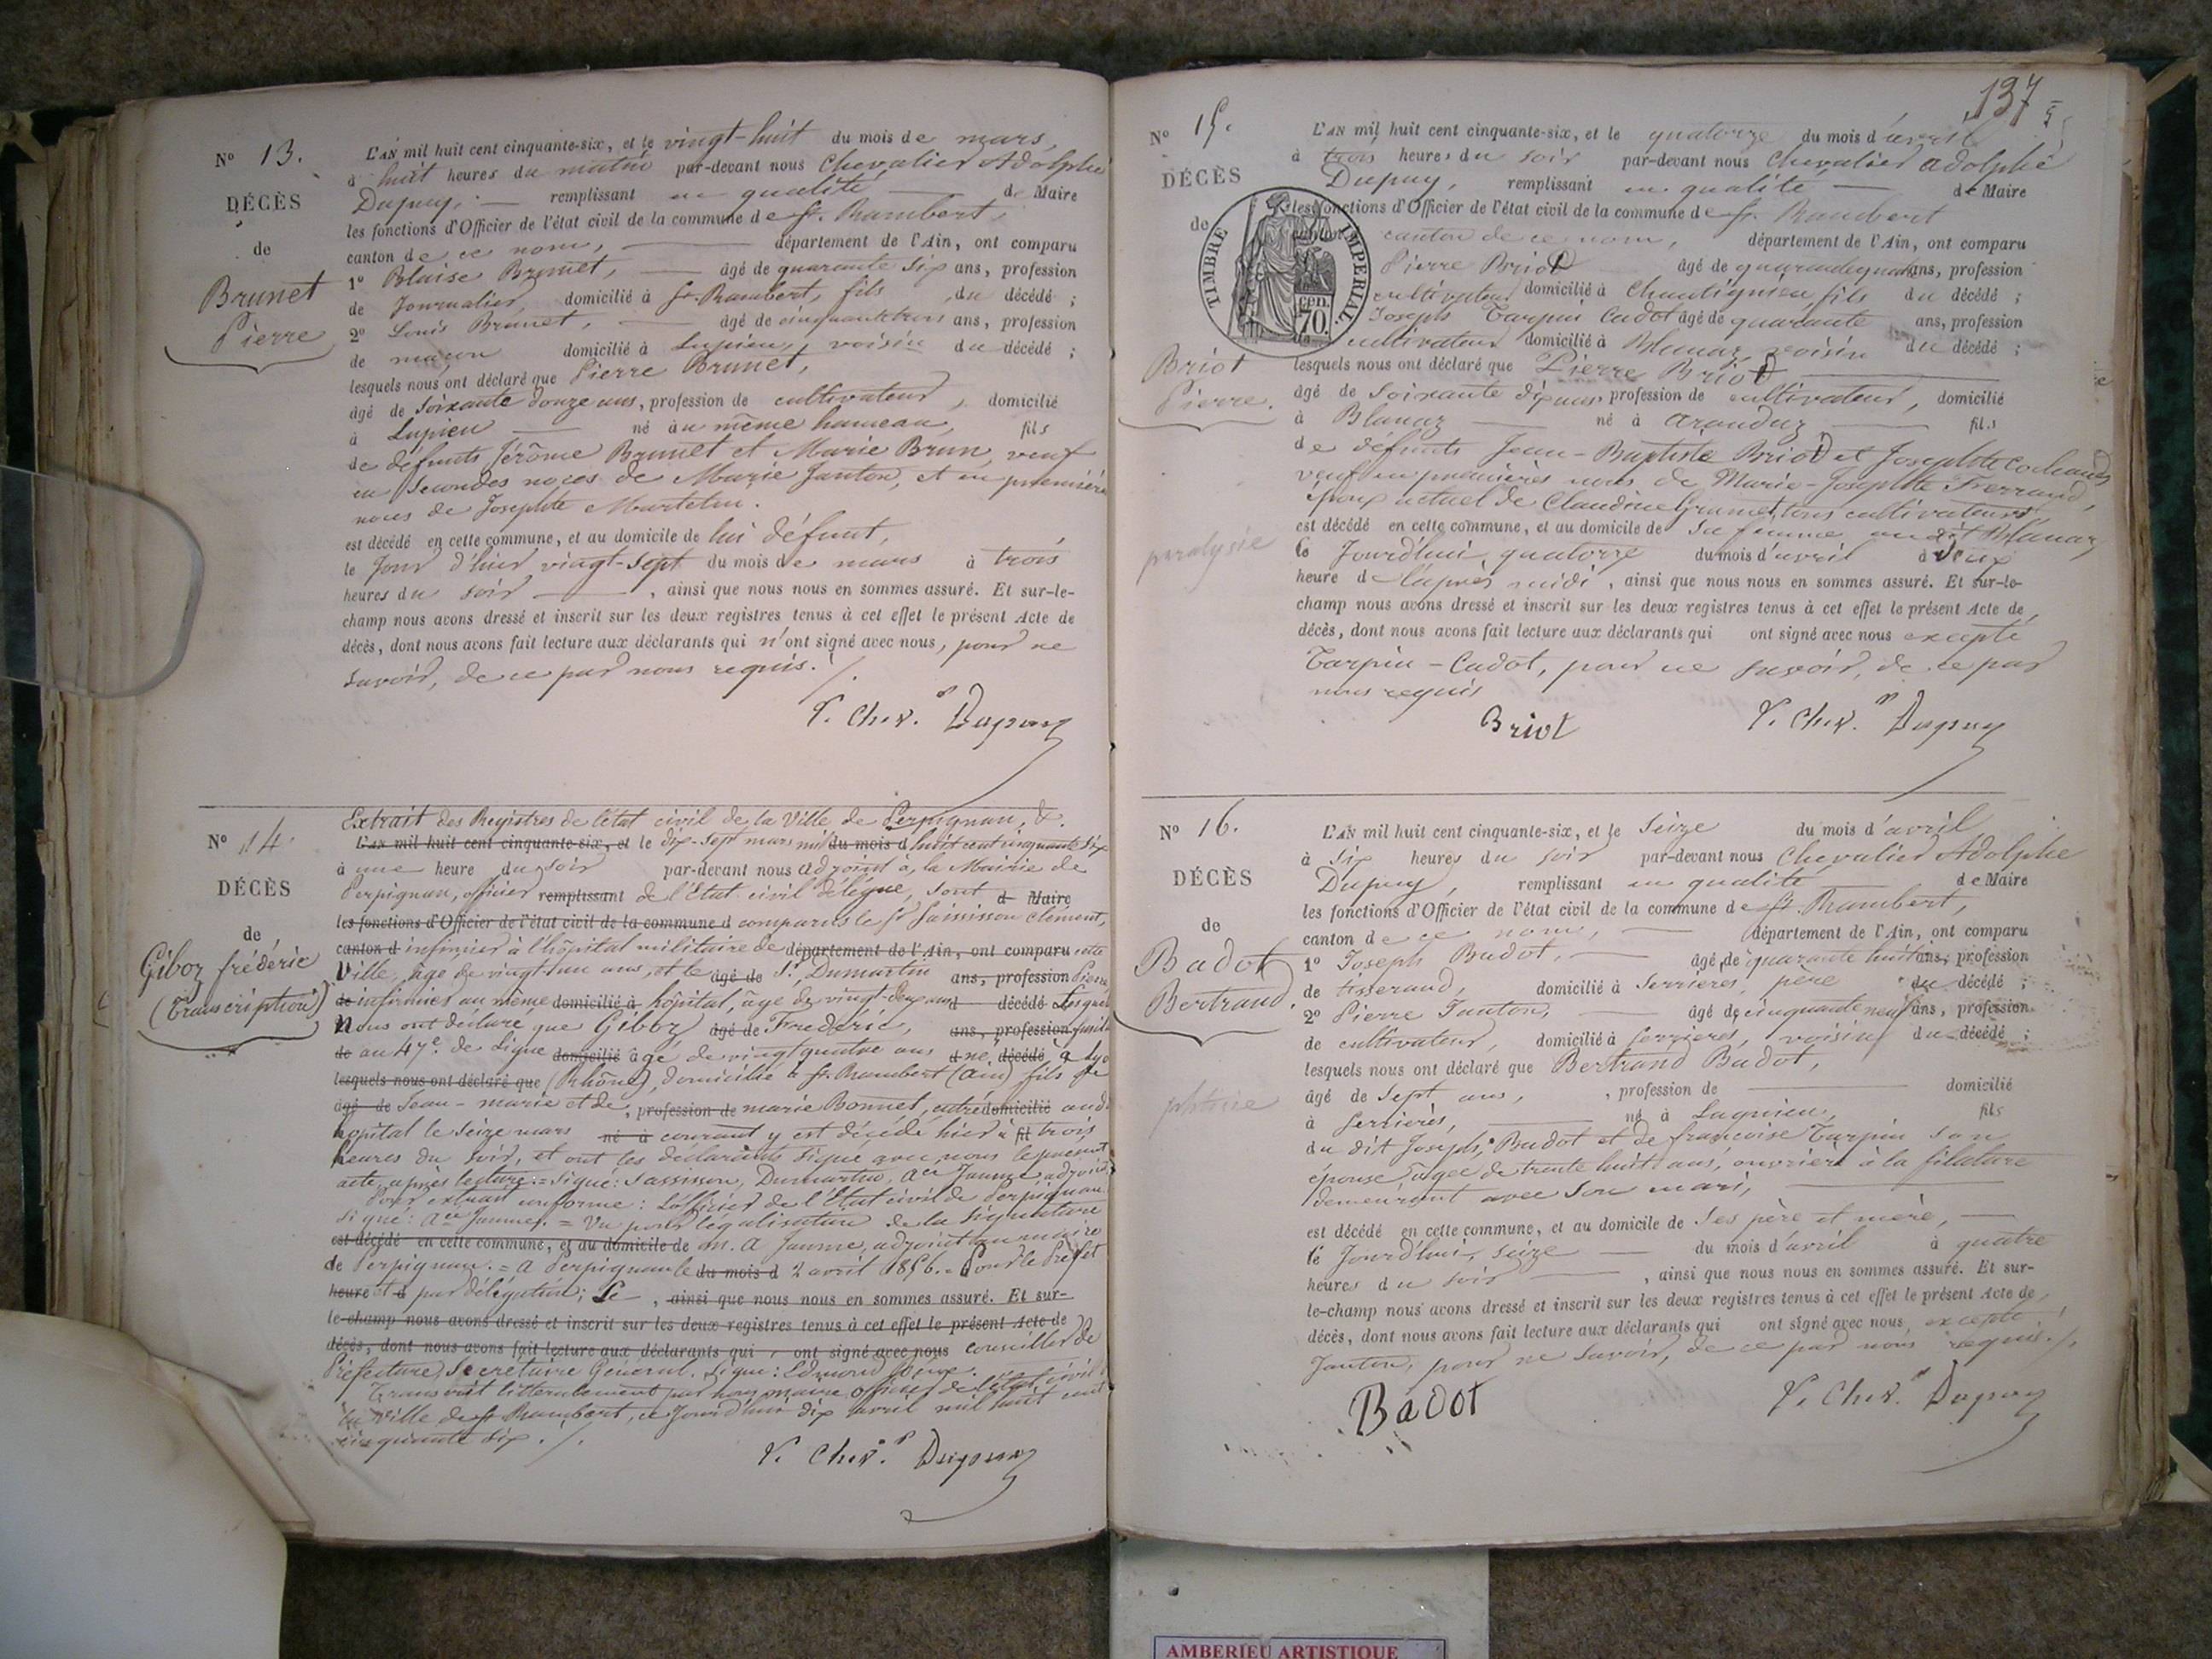 N° 13.
DÉCÈS
de
Brunet
Pierre
L'AN mil huit cent cinquante-six, et le vingt-huit du mois de mars,
à huit heures du matin par-devant nous Chevalier Adolphe
Dupuy, remplissant en qualité de Maire
les fonctions d'Officier de l'état civil de la commune de St. Rambert,
canton de ce nom, département de l'Ain, ont comparu
1° Blaise Brunet, âgé de quarante six ans, profession
de Journalier, domicilié à St. Rambert, fils du décédé ;
2° Louis Brunet, âgé de cinquante trois ans, profession
de maçon domicilié à Lupieu, voisin du décédé ;
lesquels nous ont déclaré que Pierre Brunet,
âgé de soixante douze ans, profession de cultivateur, domicilié
à Lupieu né au même hameau, fils
de défunts Jérôme Brunet et Marie Brun, veuf
en secondes noces de Marie Janton, et en premières
noces de Josephte Martelin.
est décédé en cette commune, et au domicile de lui défunt,
le Jour d'hier vingt-sept du mois de mars à trois
heures du soir, ainsi que nous nous en sommes assuré. Et sur-le-
champ nous avons dressé et inscrit sur les deux registres tenus à cet effet le présent Acte de
décès, dont nous avons fait lecture aux déclarants qui n'ont signé avec nous, pour ne
savoir, de ce par nous requis. /.
Chev. Dupuy
N° 14
DÉCÈS
de
Giboz frédéric
(transcription)
Extrait des Registres de l'état civil de la Ville de Perpignan, &.
L'AN mil huit cent cinquante-six, et le dix-sept mars mil du mois d huit cent cinquante six
à une heure du soir par-devant nous adjoint à la Mairie de
Perpignan, officier remplissant de l'Etat civil délégué, sont d Maire
les fonctions d'Officier de l'état civil de la commune d comparus le Sr Saississon Clément,
canton d infirmier à l'hôpital militaire de département de l'Ain, ont comparu cette
Ville, âgé de vingt-un ans, et le âgé de Sr. Dumartin ans, profession Pierre
de infirmier au même domicilié à hôpital, âgé de vingt-deux ans d décédé lesquels
Nous ont déclaré que Giboz âgé de Frédéric, ans, profession fusilier
de au 47e. de Ligne domicilié âgé de vingt quatre ans d né, décédé à Lyon
lesquels nous ont déclaré que (Rhône), domicilié à St. Rambert (Ain) fils de
âgé de Jean-marie et de, profession de marie Bonnet, entré domicilié audit
hôpital le seize mars né à courant y est décédé hier à fil trois
heures du soir, et ont les déclarants signé avec nous le présent
acte, après lecture. = Signé: Sassisson, Dumartin, Jaume adjoint
Pour extrait conforme: L'officier de l'Etat civil de Perpignan.
Signé: Jaume. = Vu pour légalisation de la signature
est décédé en cette commune, et au domicile de m. A Jaume, adjoint au maire
de Perpignan. = A Perpignan le du mois d 2 avril 1856. = Pour le Préfet
heure et d par délégation; Le, ainsi que nous nous en sommes assuré. Et sur-
le-champ nous avons dressé et inscrit sur les deux registres tenus à cet effet le présent Acte de
décès, dont nous avons fait lecture aux déclarants qui ont signé avec nous conseiller de
Préfecture, Secrétaire Général. Signé: Edmond
Transcrit littéralement par nous maire officier de l'état civil de
la Ville de St Rambert, ce Jourd'hui dix avril mil huit cent
cinquante six. /.
Chev. Dupuy
137
N° 15.
DÉCÈS
de
Briot
Pierre.
paralysie
TIMBRE IMPERIAL.
70. cen.
L'AN mil huit cent cinquante-six, et le quatorze du mois d'avril
à trois heures du soir par-devant nous Chevalier Adolphe
Dupuy, remplissant en qualité de Maire
les fonctions d'Officier de l'état civil de la commune de St. Rambert
canton de ce nom, département de l'Ain, ont comparu
Pierre Briod âgé de quarante quatre ans, profession
cultivateur domicilié à Chantignieu fils du décédé ;
Joseph Tarpin Cadot âgé de quarante ans, profession
cultivateur domicilié à Blanaz voisin du décédé ;
lesquels nous ont déclaré que Pierre Briod
âgé de soixante dix ans profession de cultivateur, domicilié
à Blanaz né à Aranduz fils
de défunts Jean-Baptiste Briod et Josephte
veuf en premières noces de Marie-Josephte Ferrand,
époux actuel de Claudine Grumet, tous cultivateurs
est décédé en cette commune, et au domicile de sa femme au dit Blanaz
le Jourd'hui quatorze du mois d'avril à deux
heure de l'après midi, ainsi que nous nous en sommes assuré. Et sur-le-
champ nous avons dressé et inscrit sur les deux registres tenus à cet effet le présent Acte de
décès, dont nous avons fait lecture aux déclarants qui ont signé avec nous excepté
Tarpin-Cadot, pour ne savoir, de ce par
nous requis
Briot
Chev. Dupuy
N° 16.
DÉCÈS
de
Badot
Bertrand.
phtisie
L'AN mil huit cent cinquante-six, et le Seize du mois d'avril
à six heures du soir par-devant nous Chevalier Adolphe
Dupuy, remplissant en qualité de Maire
les fonctions d'Officier de l'état civil de la commune de St. Rambert,
canton de ce nom, département de l'Ain, ont comparu
1° Joseph Badot, âgé de quarante huit ans, profession
de tisserand, domicilié à Serrières, père du décédé ;
2° Pierre Janton, âgé de cinquante neuf ans, profession
de cultivateur, domicilié à Serrières, voisin du décédé ;
lesquels nous ont déclaré que Bertrand Badot,
âgé de sept ans, profession de domicilié
à Serrières, né à Lagnieu, fils
du dit Joseph Badot et de françoise Tarpin son
épouse, âgée de trente huit ans, ouvrière à la filature
demeurant avec son mari,
est décédé en cette commune, et au domicile de ses père et mère,
le Jourd'hui, seize du mois d'avril à quatre
heures du soir, ainsi que nous nous en sommes assuré. Et sur-
le-champ nous avons dressé et inscrit sur les deux registres tenus à cet effet le présent Acte de
décès, dont nous avons fait lecture aux déclarants qui ont signé avec nous, excepté
Janton, pour ne savoir, de ce par nous requis. /.
Badot
Chev. Dupuy
AMBERIEU ARTISTIQUE